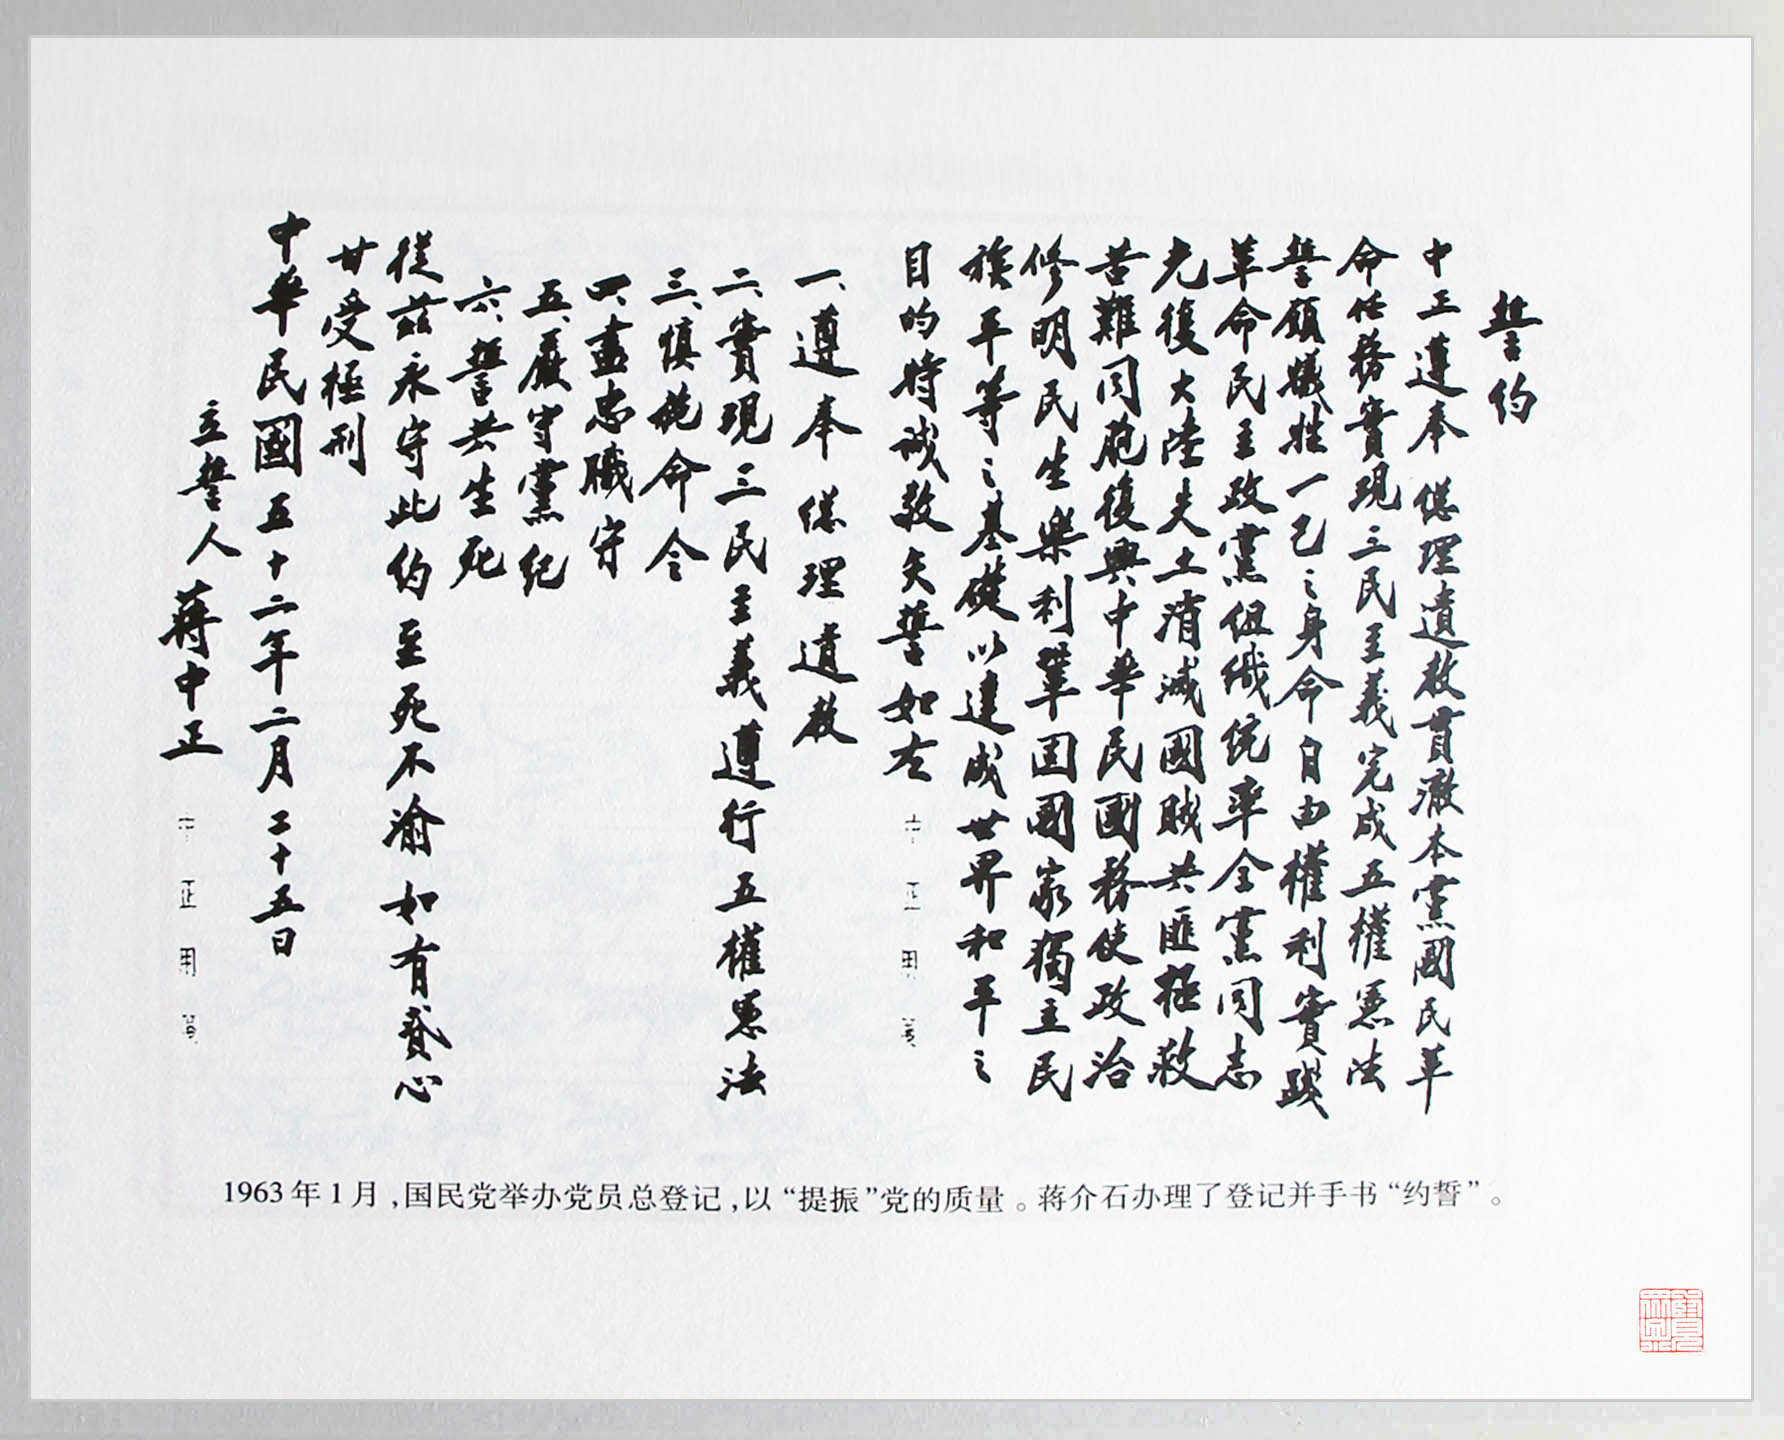 誓約
中正遵奉 總理遺教貫澈本黨國民革
命任務實現三民主義完成五權憲法
誓願犧牲一己之身命自由權利實踐
革命民主政黨組織統率全黨同志
光復大陸失土消滅國賊共匪拯救
苦難同胞復興中華民國務使政治
修明民生樂利鞏固國家獨立民
族平等之基礎以達成世界和平之
目的特誠敬矢誓如左
一、遵奉 總理遺教
二、實現三民主義遵行五權憲法
三、慎施命令
四、盡忠職守
五、嚴守黨紀
六、誓共生死
從茲永守此約至死不渝如有貳心
甘受極刑
中華民國五十二年二月二十五日
立誓人 蔣中正
中正用箋
中正用箋
1963年1月,国民党举办党员总登记,以“提振”党的质量。蒋介石办理了登记并手书“约誓”。